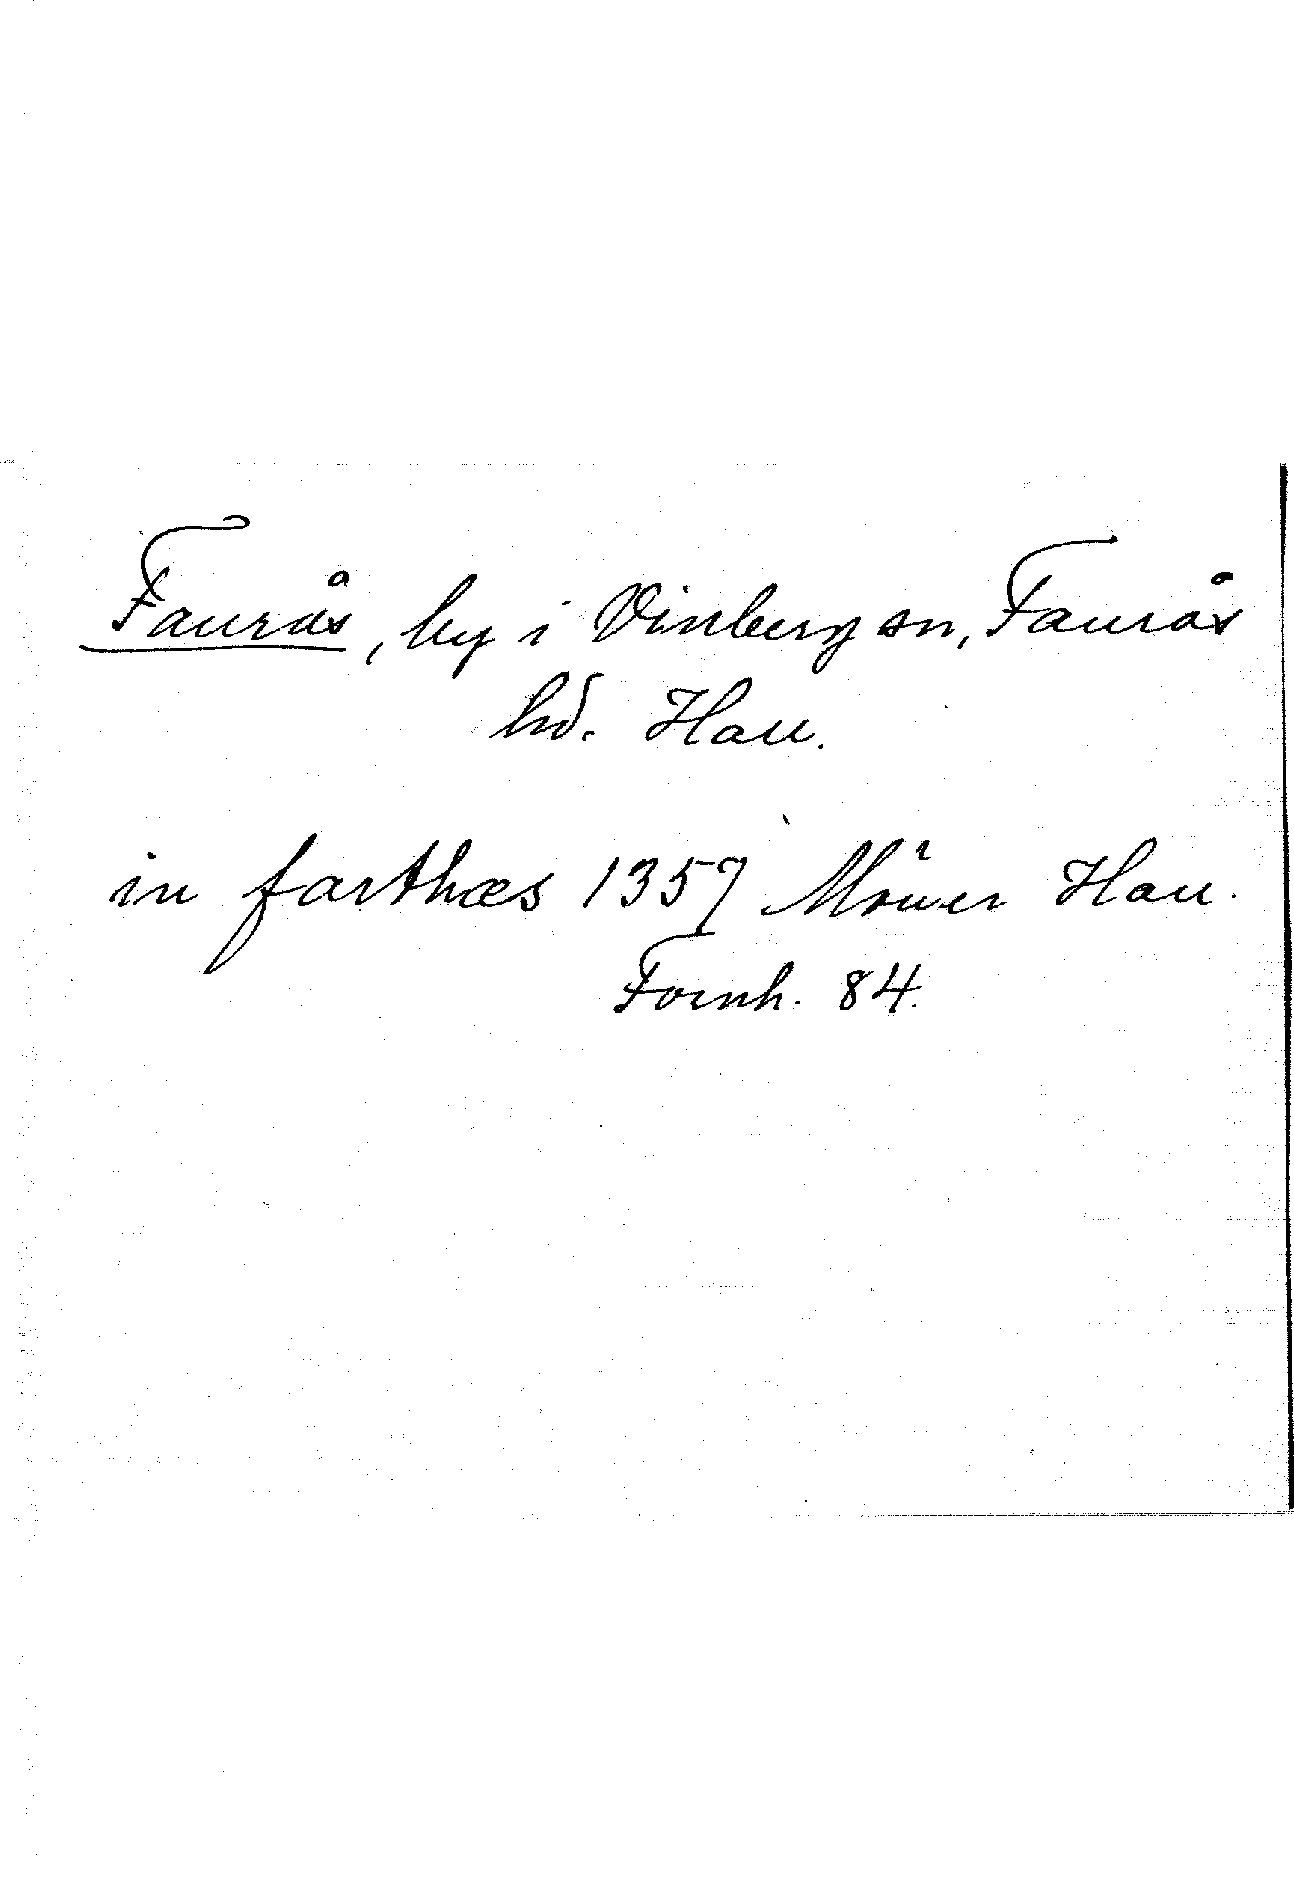 Faurås, by i Vinberg sn, Faurås
hd. Hall.
in farthæs 1357 Möller Hall.
Fornh. 84.